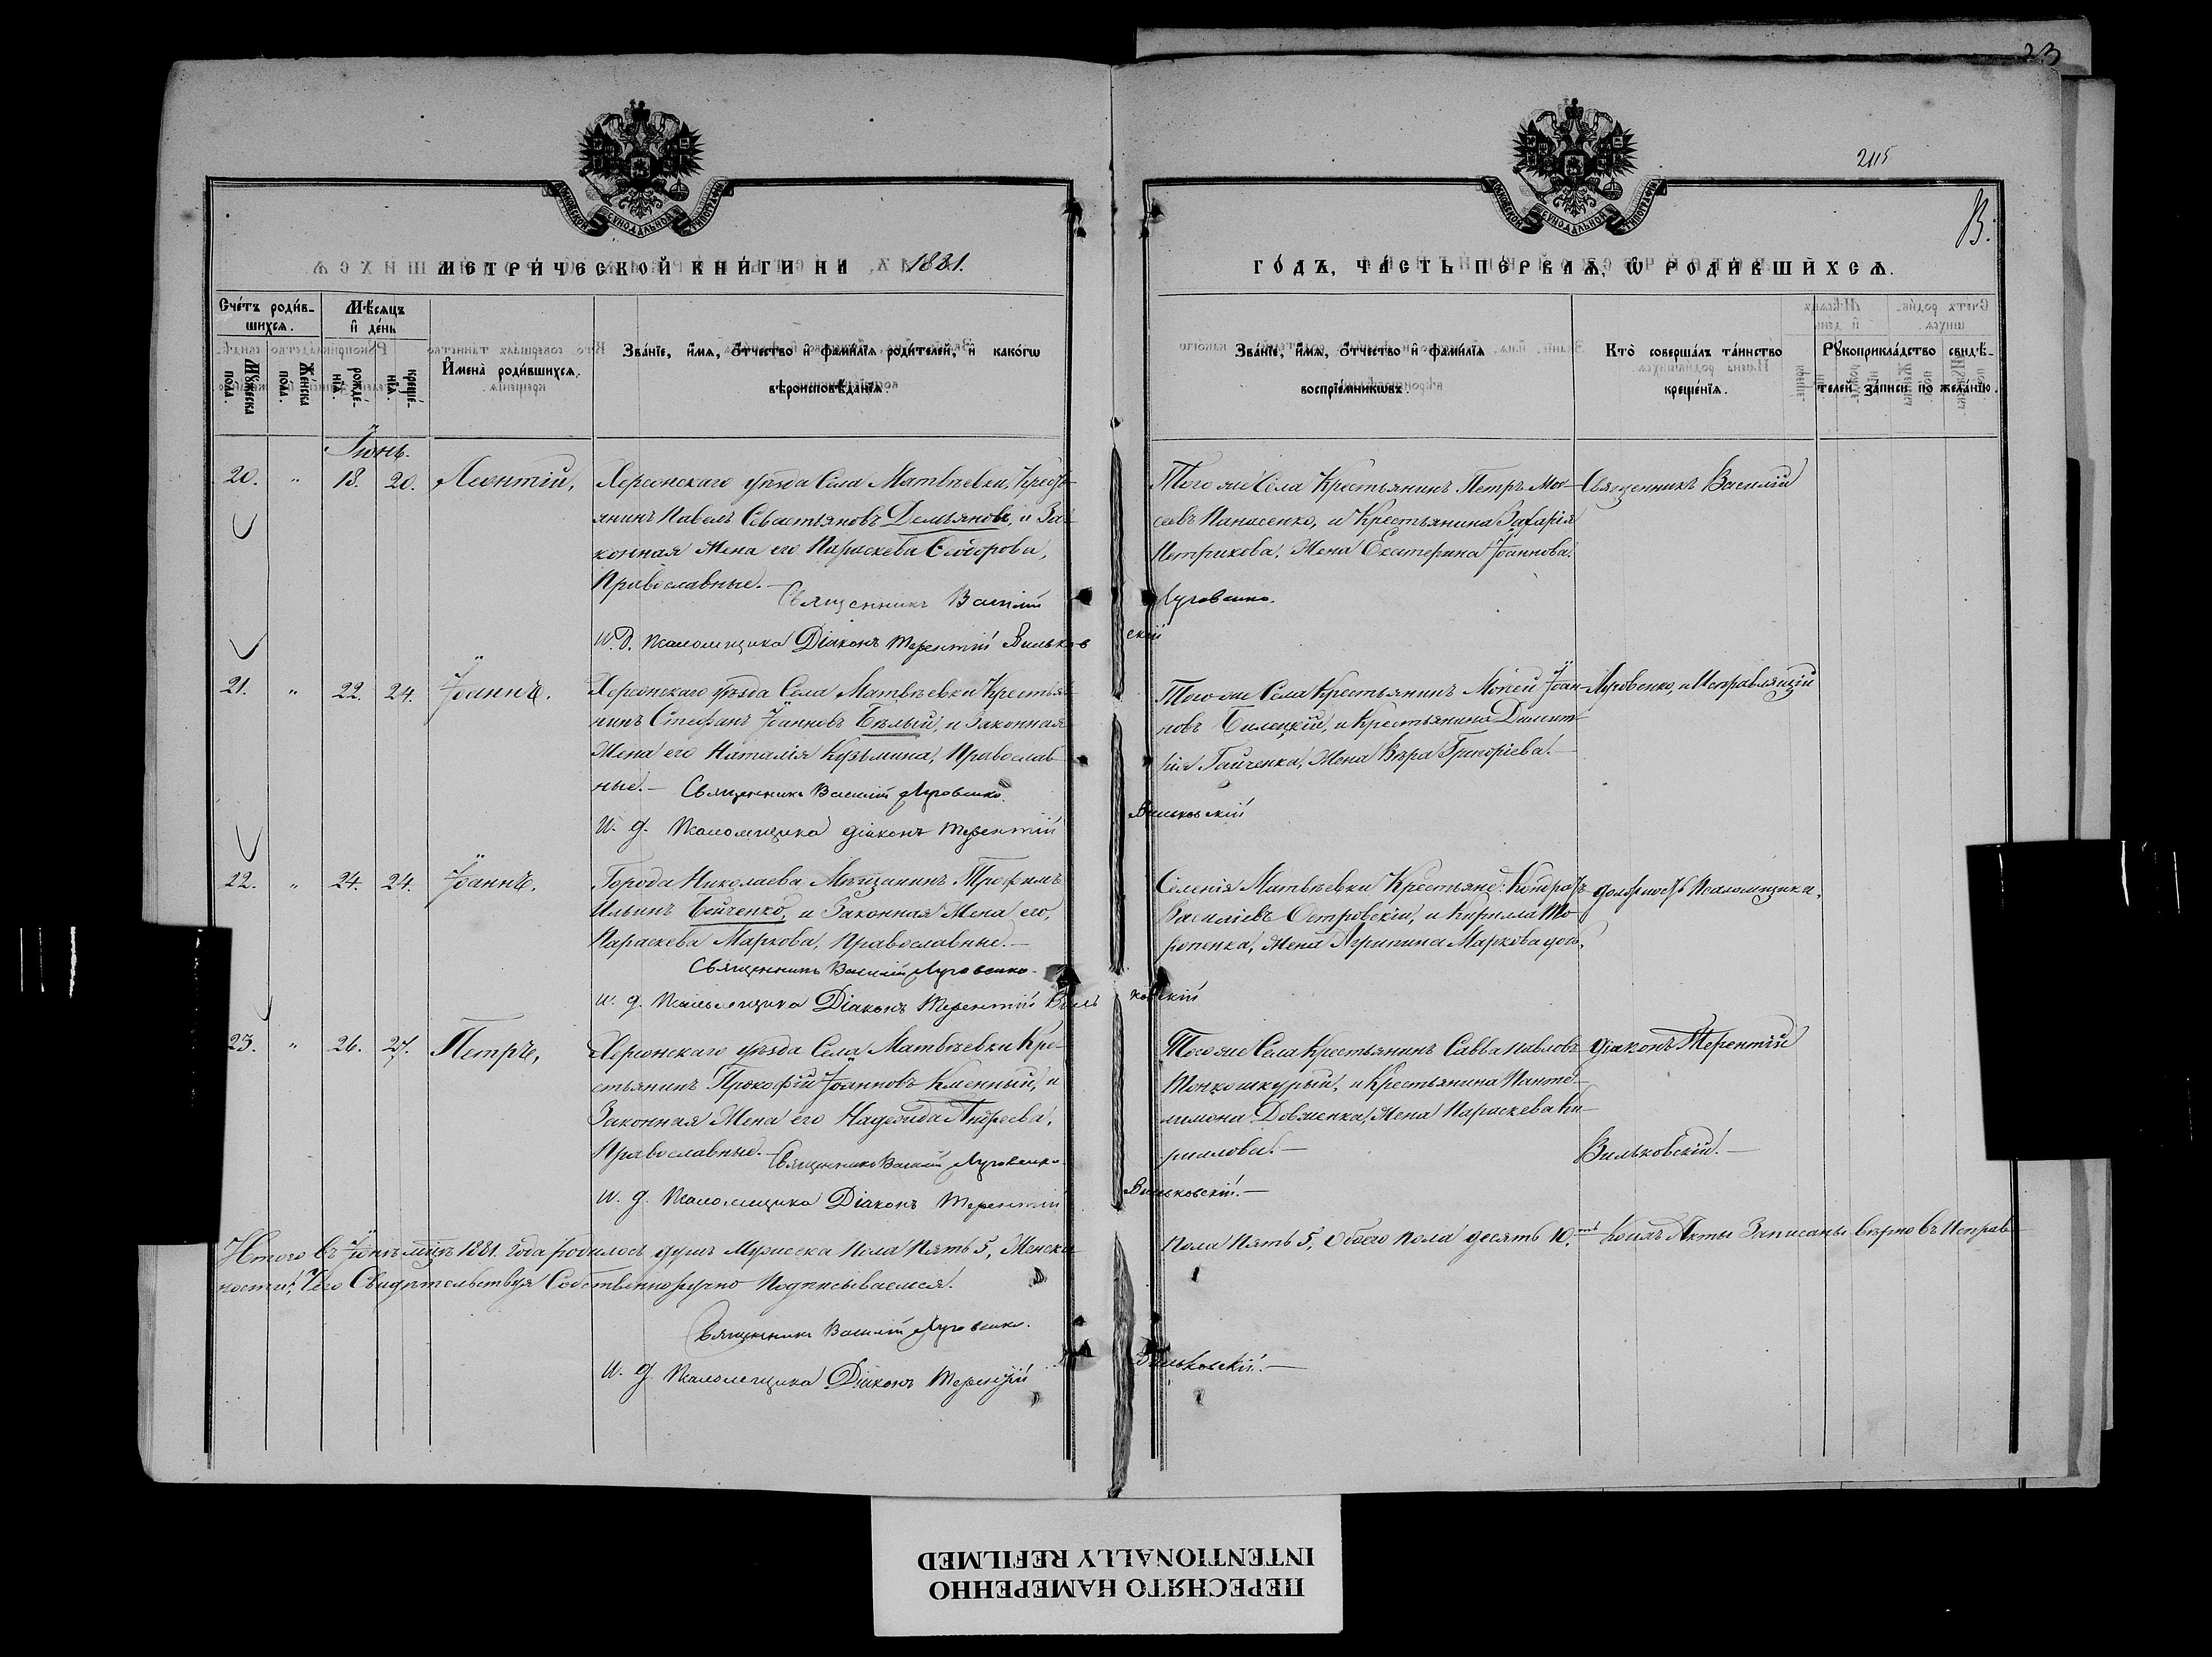 23
2115
В.
МЕТРИЧЕСКОЙ КНИГИ НА 1881.
ГОДЪ, ЧАСТЬ ПЕРВАЯ, Ѡ РОДИВШИХСЯ.
Счетъ родив-
шихся.
Мужеска пола.
Женска пола.
Мѣсяцъ
и день
рожде-
нія.
креще-
нія.
Имена родившихся.
Званіе, имя, отчество и фамилія родителей, и какогѡ
вѣроисповѣданія.
Званіе, имя, отчество и фамилія
воспріемникѡвъ.
Кто совершалъ таинство
крещенія.
Рукоприкладство свидѣ-
телей записи по желанію.
Іюнь.
20. " 18. 20. Леонтій,
Херсонскаго уѣзда Села Матвѣевки, Кресть-
янинъ Павелъ Севастьяновъ Демьяновъ, и За-
конная Жена его Параскева Ѳеодорова,
Православные.—
Священникъ Василій Луговенко.
И. д. Псаломщика Діаконъ Терентій Вильковскій
Того же Села Крестьянинъ Петръ Мой-
сеевъ Панасенко, и Крестьянина Захарія
Петрикова, Жена Екатерина Іоаннова.
Священникъ Василій
21. " 22. 24. Іоаннъ.
Херсонскаго уѣзда Села Матвѣевки Крестья-
нинъ Стефанъ Іоанновъ Бѣлый, и Законная
Жена его Наталія Козьмина, Православ-
ные.—
Священникъ Василій Луговенко.
И. д. Псаломщика діаконъ Терентій Вильковскій
Того же Села Крестьянинъ Мокей Іоан-
новъ Билецкій, и Крестьянина Димит-
рія Гайченка, Жена Вѣра Григоріева.—
Луговенко, и Исправляющій
22. " 24. 24. Іоаннъ.
Города Николаева Мѣщанинъ Трофимъ
Ильинъ Бойченко, и Законная Жена его,
Параскева Маркова, Православные.—
Священникъ Василій Луговенко.
и. д. Псаломщика Діаконъ Терентій Вильковскій
Селенія Матвѣевки Крестьяне: Кондратъ
Василіевъ Островскій, и Кирилла То-
ропенка, Жена Агрипина Маркова
должность Псаломщика,
23. " 26. 27. Петръ,
Херсонскаго уѣзда Села Матвѣевки Кре-
стьянинъ Прокофій Іоанновъ Кленный, и
Законная Жена его Надежда Андреева,
Православные.—
Священникъ Василій Луговенко
и. д. Псаломщика Діаконъ Терентій Вильковскій.—
Того же Села Крестьянинъ Савва Павловъ
Тонкошкурый, и Крестьянина Панте-
лимона Довженка, Жена Параскева Ки-
рилова.—
діаконъ Терентій
Вильковскій.—
Итого въ Іюнѣ мцѣ 1881. года родилось душъ Мужеска пола Пять 5, Женска пола Пять 5, Обоего пола десять 10. коихъ Акты Записаны вѣрно въ Исправ-
ности, Чего Свидѣтельствуя Собственноручно Подписываемся.
Священникъ Василій Луговенко.
и. д. Псаломщика Діаконъ Терентій Вильковскій.—
ПЕРЕСНЯТО НАМЕРЕННО
INTENTIONALLY REFILMED